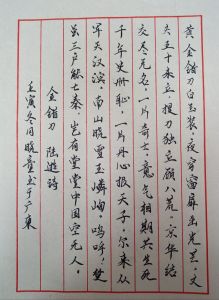 黄金错刀白玉装,夜穿窗扉出光芒,丈
夫五十未立,提刀独立顾八荒,京华结
交尽无名,一片奇士,意气相期共生死
千年史册耻,一片丹心报天子,尔来从
军天汉滨,南山晓雪玉嶙峋,呜呼,楚
虽三户能亡秦,岂有堂堂中国空无人,
金错刀 陆游诗
壬寅冬月晓书于广东